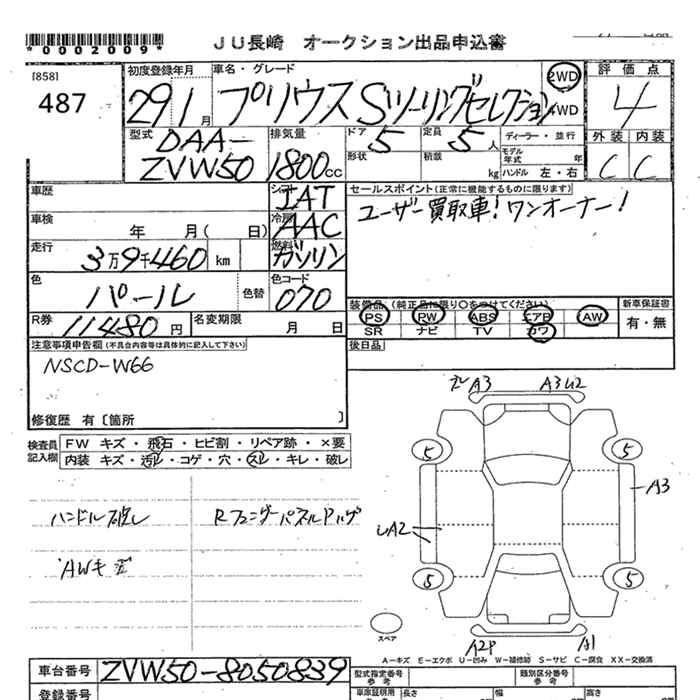 *0002009*
JU長崎 オークション出品申込書
[858]
487
初度登録年月
29 1月
車名・グレード
プリウス Sツーリングセレクション
2WD
4WD
評価点
4
型式
DAA-
ZVW50
排気量
1800cc
ドア
5
定員
5人
形状
積載
kg
ディーラー・並行
モデル年式
年
ハンドル 左・右
外装 内装
C C
車歴
シフト
IAT
セールスポイント(正常に機能するものに限ります)
ユーザー買取車!ワンオーナー!
車検
年 月( 日)
冷房
AAC
走行
3万9千460km
燃料
ガソリン
色
パール
色替
色コード
070
装備品 (純正品に限り○をつけてください)
新車保証書
PS PW ABS エアB AW
SR ナビ TV カワ
有・無
R券
11480円
名変期限
月 日
後日品
注意事項申告欄(不具合内容等は具体的に記入して下さい)
NSCD-W66
修復歴 有〔箇所 〕
検査員
記入欄
FW キズ・飛石・ヒビ割・リペア跡・×要
内装 キズ・汚レ・コゲ・穴・スレ・キレ・破レ
A3
A3U2
5 5
A3
A2
5 5
A1
スペア
AWキズ
A-キズ E-エクボ U-凹み W-補修跡 S-サビ C-腐食 XX-交換済
車台番号
ZVW50-8050839
登録番号
型式指定番号
参考
類別区分番号
参考
長さ
幅
高さ